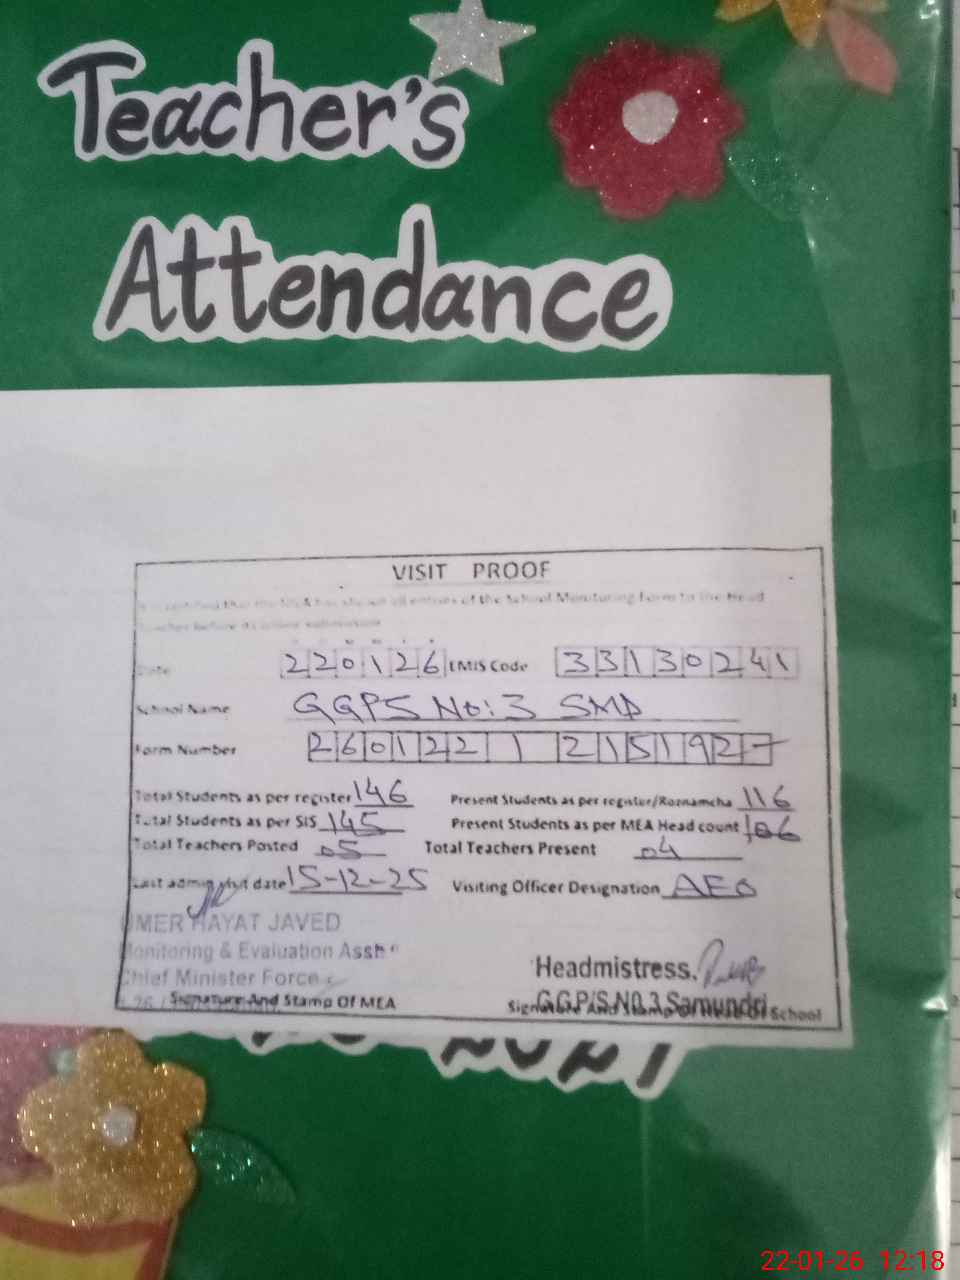 Teacher's
Attendance
VISIT PROOF
It is certified that the MEA has shown all entries of the School Monitoring Form to the Head
Teacher before its online submission
Date 220126 EMIS Code 33130241
School Name GGPS No:3 SMD
Form Number 2601221215192
Total Students as per register 146 Present Students as per register/Roznamcha 116
Total Students as per SIS 145 Present Students as per MEA Head count 106
Total Teachers Posted 05 Total Teachers Present 04
Last admin visit date 15-12-25 Visiting Officer Designation AEO
UMER HAYAT JAVED
Monitoring & Evaluation Asstt
Chief Minister Force
Headmistress.
G.G.P/S N0.3 Samundri
Signature And Stamp Of MEA Signature And Stamp Of Head Of School
22-01-26 12:18